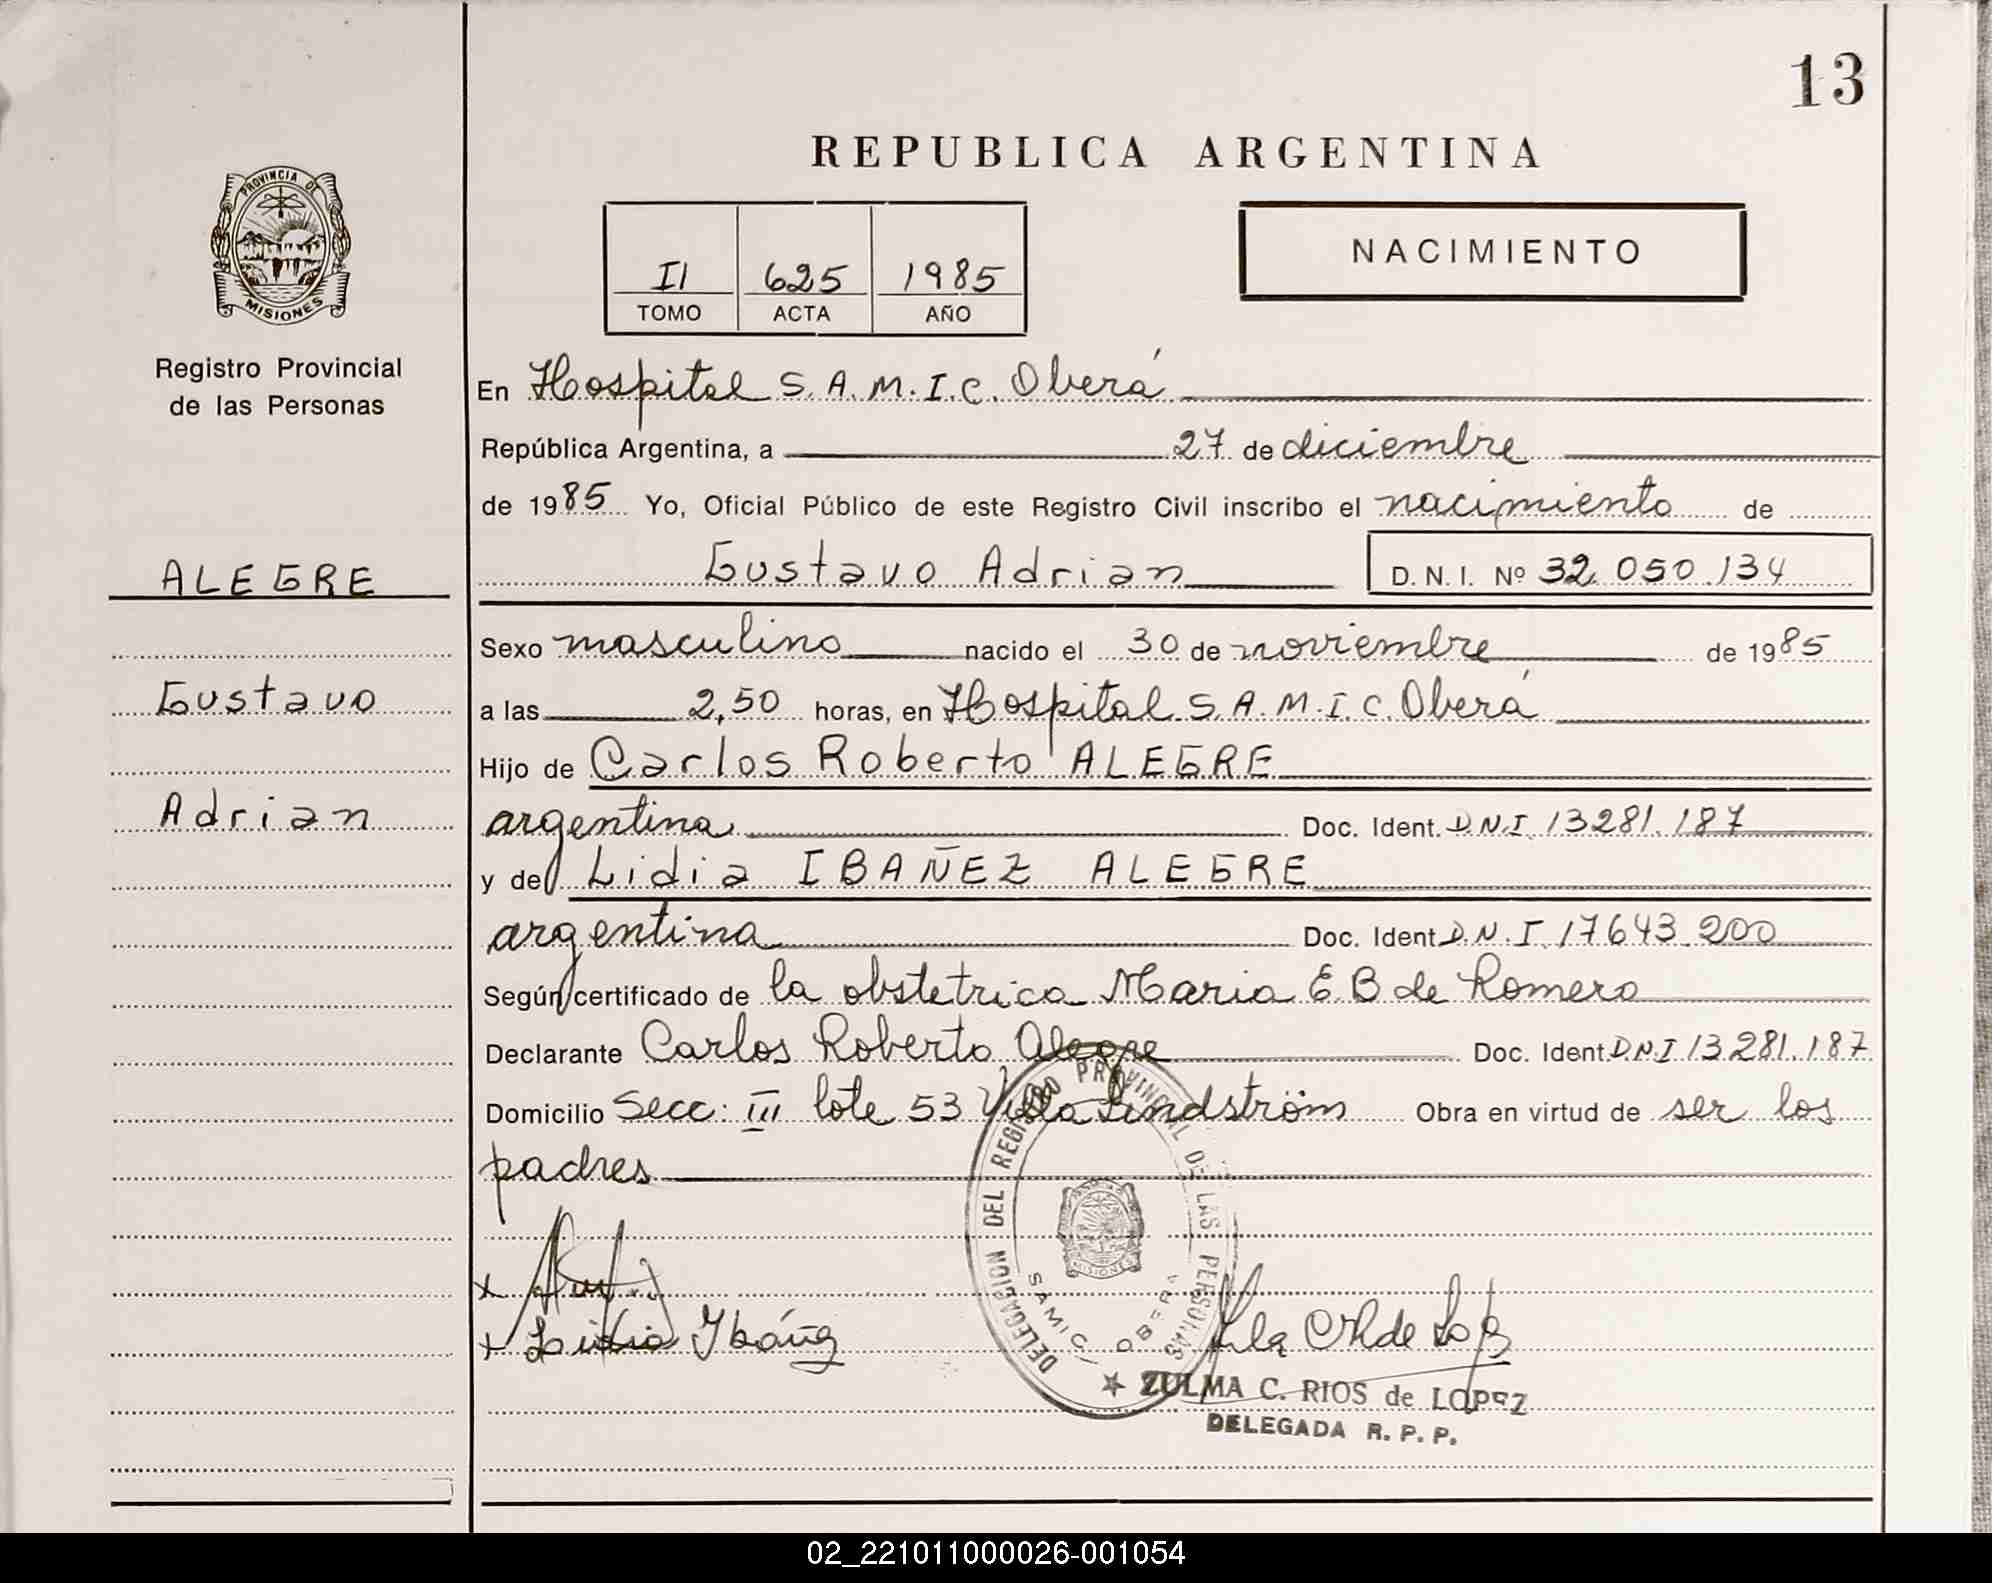 13
REPUBLICA ARGENTINA
PROVINCIA DE
MISIONES
Registro Provincial
de las Personas
II 625 1985
TOMO ACTA AÑO
NACIMIENTO
En Hospital S.A.M.I.C. Oberá
República Argentina, a 27 de diciembre
de 1985 Yo, Oficial Público de este Registro Civil inscribo el nacimiento de
Gustavo Adrian D.N.I. Nº 32.050.134
ALEGRE
Gustavo
Adrian
Sexo masculino nacido el 30 de noviembre de 1985
a las 2,50 horas, en Hospital S.A.M.I.C. Oberá
Hijo de Carlos Roberto ALEGRE
argentina Doc. Ident. D.N.I. 13281.187
y de Lidia IBAÑEZ ALEGRE
argentina Doc. Ident D.N.I. 17643.200
Según certificado de la obstetrica Maria E.B de Romero
Declarante Carlos Roberto Alegre Doc. Ident D.N.I 13281.187
Domicilio Secc: III lote 53 Villa Lindström Obra en virtud de ser los
padres
DELEGACION DEL REGISTRO PROVINCIAL DE LAS PERSONAS
MISIONES
SAMIC. OBERA
x
x Lidia Ibáñez
ZULMA C. RIOS de LOPEZ
DELEGADA R. P. P.
02_221011000026-001054